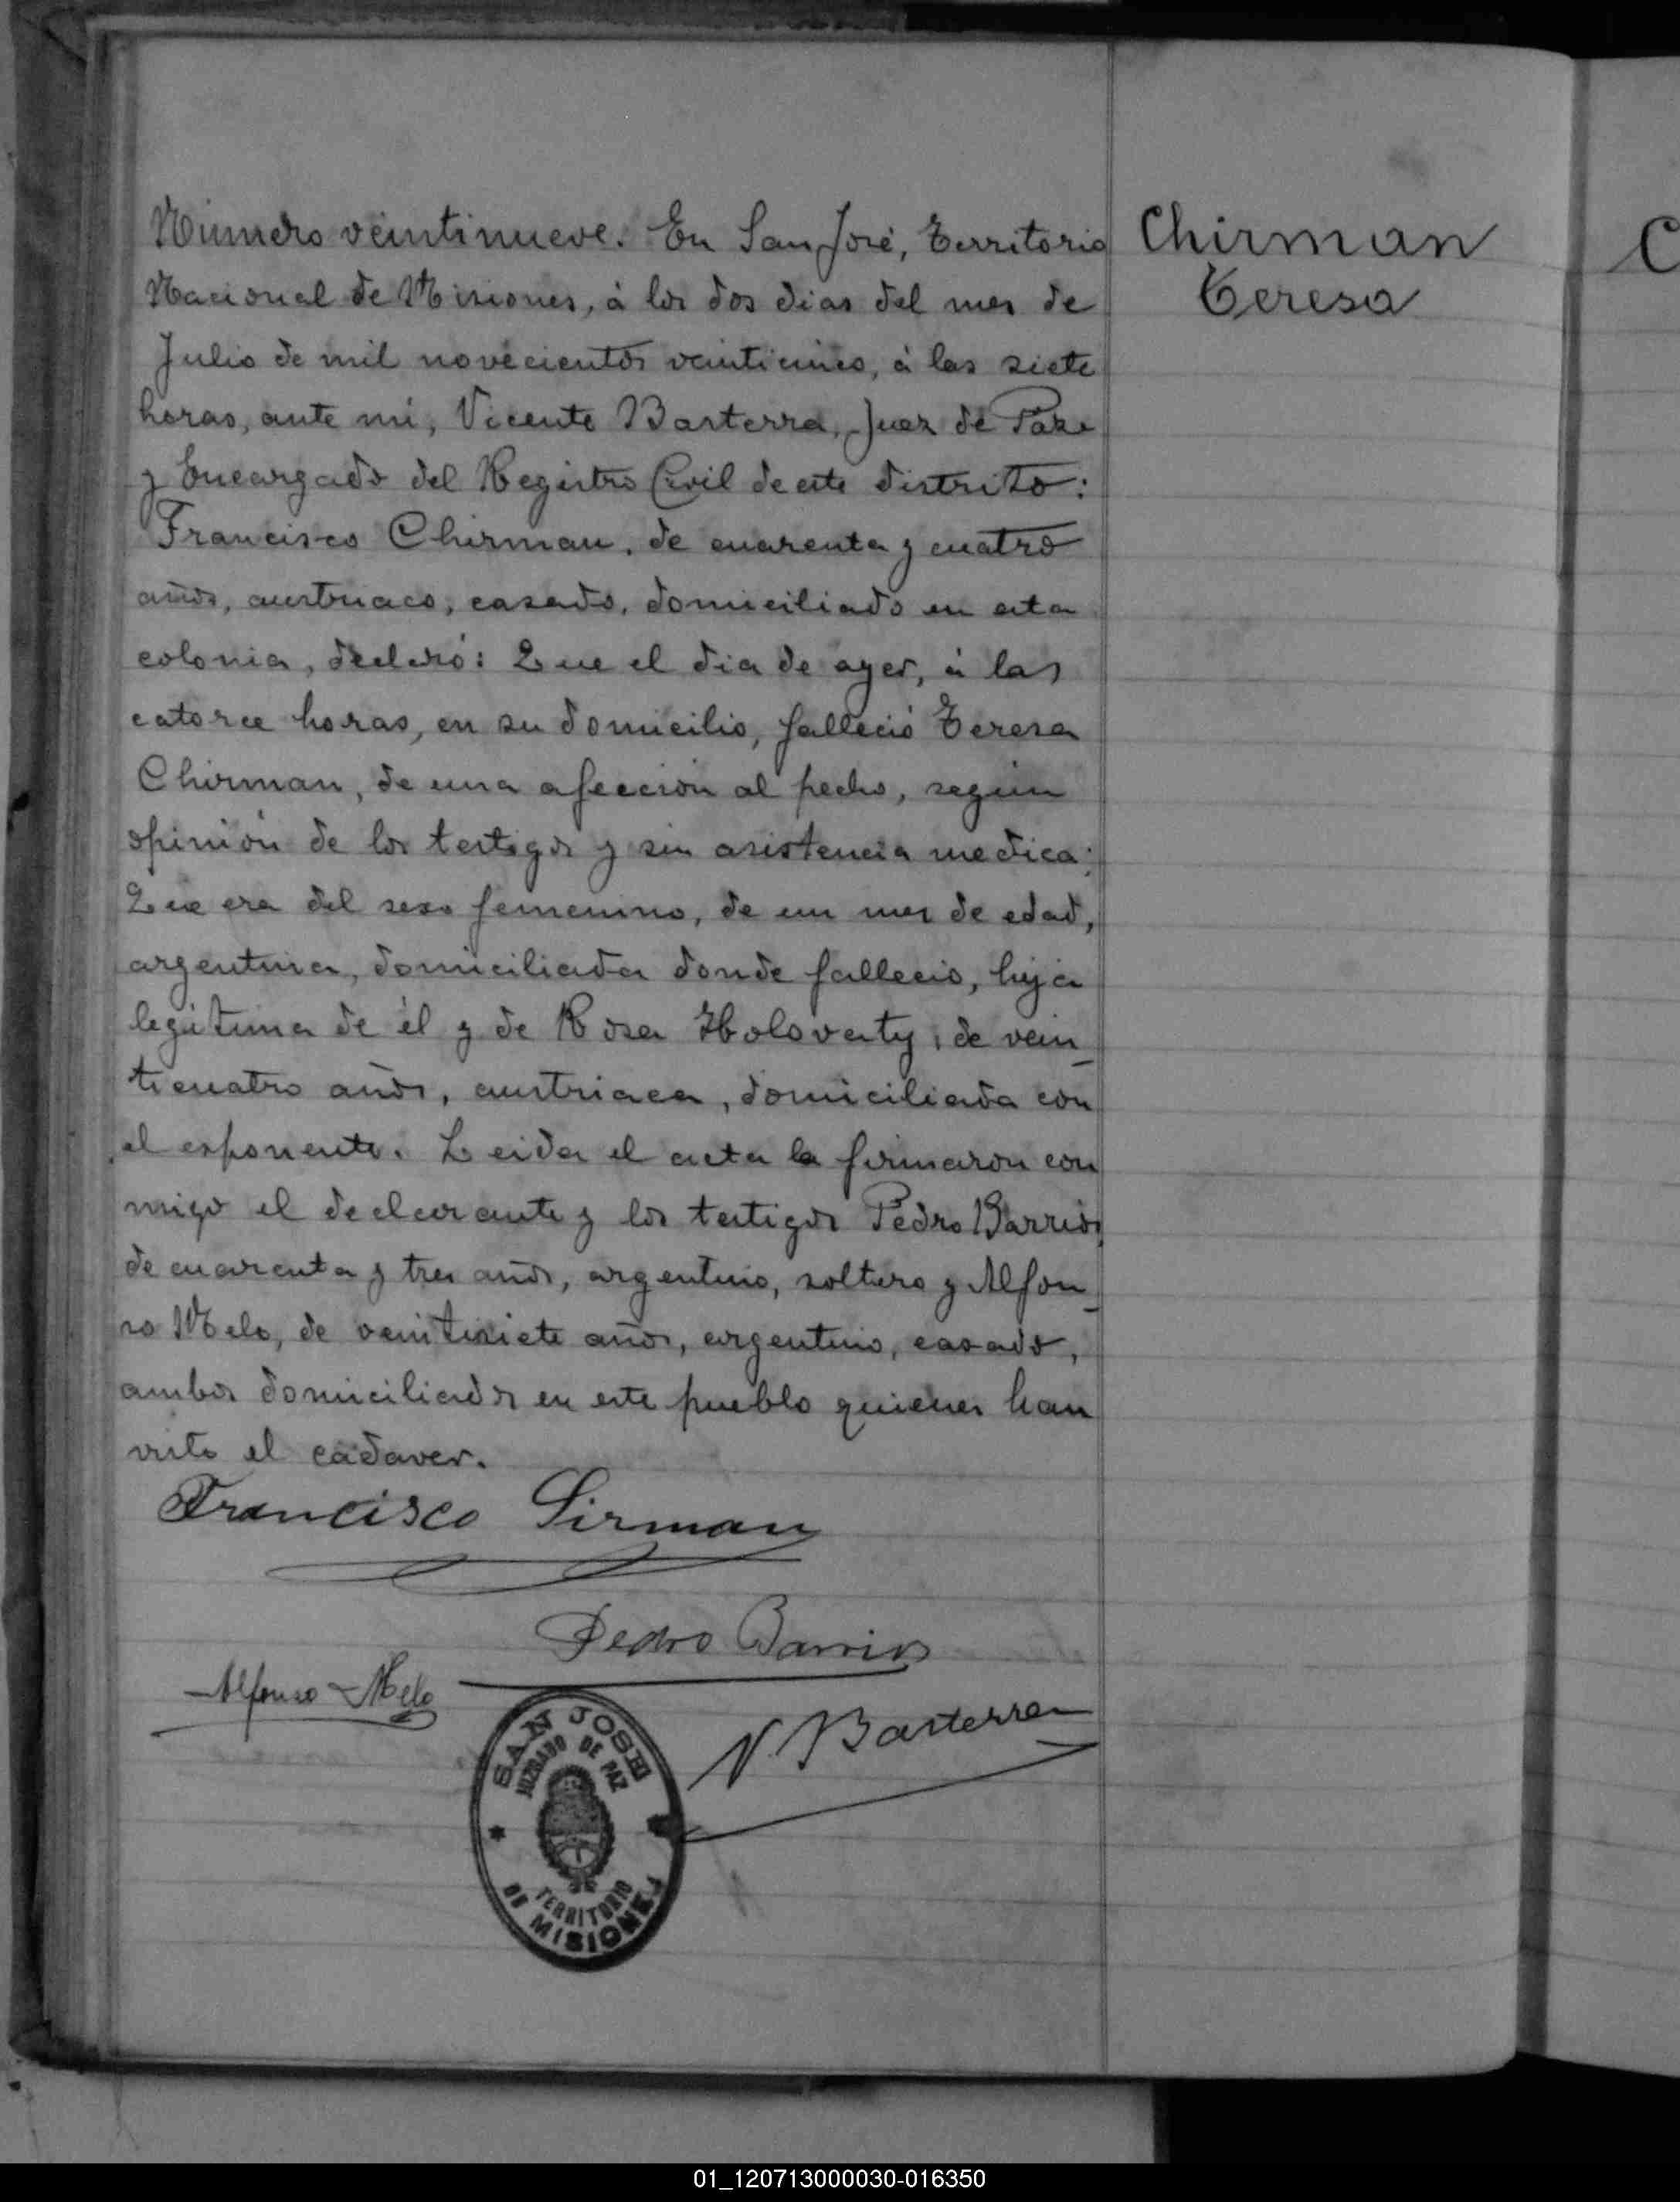 Número veintinueve. En San José, Territorio
Nacional de Misiones, á los dos dias del mes de
Julio de mil novecientos veinticinco, á las siete
horas, ante mí, Vicente Basterra, Juez de Paz
y Encargado del Registro Civil de este distrito:
Francisco Chirman, de cuarenta y cuatro
años, austriaco, casado, domiciliado en esta
colonia, declaró: Que el dia de ayer, á las
catorce horas, en su domicilio, falleció Teresa
Chirman, de una afección al pecho, según
opinión de los testigos y sin asistencia medica:
Que era del sexo femenino, de un mes de edad,
argentina, domiciliada donde falleció, hija
legítima de él y de Rosa Holovaty, de vein_
ticuatro años, austriaca, domiciliada con
el exponente. Leida el acta la firmaron con
migo el declarante y los testigos Pedro Barrios,
de cuarenta y tres años, argentino, soltero y Alfon_
so Melo, de veintisiete años, argentino, casado,
ambos domiciliados en este pueblo quienes han
visto el cadaver.
Francisco Sirman
Pedro Barrios
Alfonso Melo
V. Basterra
SAN JOSE
JUZGADO DE PAZ
TERRITORIO
DE MISIONES
Chirman
Teresa
C
01_120713000030-016350